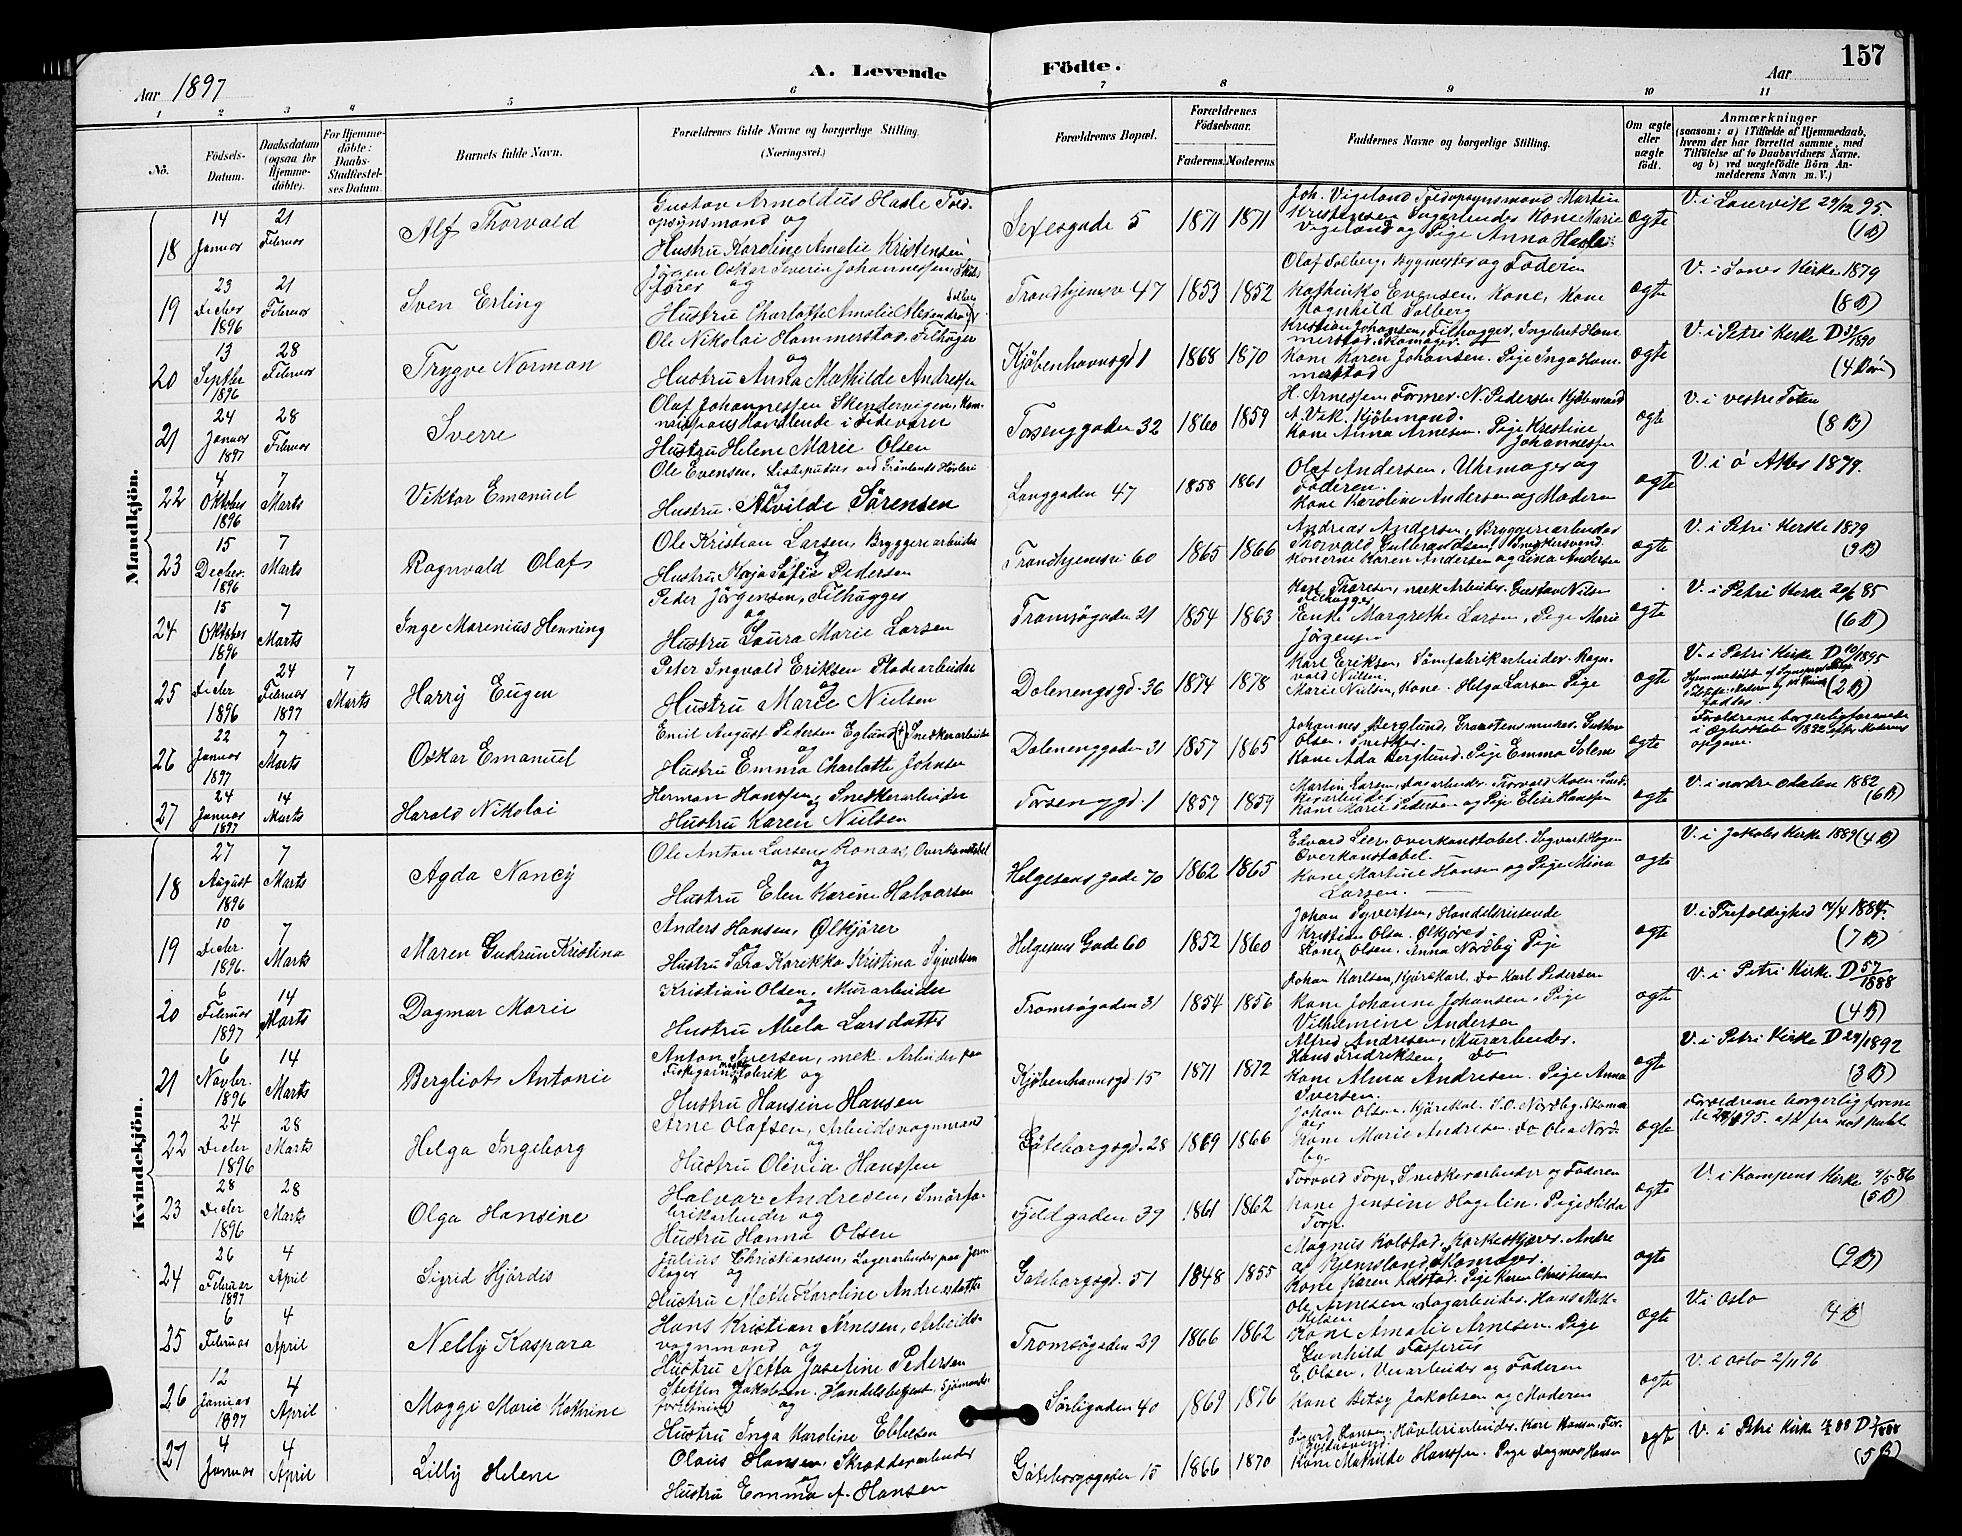 157
Aar 1897
A. Levende Födte.
Aar
1 2 3 4 5 6 7 8 9 10 11
No.
Födsels-Datum.
Daabsdatum (ogsaa for Hjemme-döbte).
For Hjemme-döbte: Daabs-Stadfæstel-ses Datum.
Barnets fulde Navn.
Forældrenes fulde Navne og borgerlige Stilling. (Næringsvei.)
Forældrenes Bopæl.
Forældrenes Födselsaar.
Faderens. Moderens.
Faddernes Navne og borgerlige Stilling.
Om ægte eller uægte født.
Anmærkninger
(saasom: a) i Tilfælde af Hjemmedaab, hvem der har forrettet samme, med Tilföielse af to Daabsvidners Navne. og b) ved uægtefödte Börn An-melderens Navn m. V.)
Mandkjön.
18 14 Januar 21 Februar Alf Thorvald
Gustav Arnoldus Hasle Told-
opsynsmand og
Hustru Karoline Amalie Kristensen
Sexesgade 5 1871 1871
Joh. Vigeland Toldopsynsmand Martin
Kristensen Kone Marie
Vigeland og Pige Anna Hasle
ægte V. i Laurvik 29/12 95. (1 B)
19 23 Decber 1896 21 Februar Sven Erling
Jörgen Oskar Severin Johannessen,
og
Hustru Charlotte Amalie Alexandra Solberg
Trondhjemsv 47 1853 1852
Olaf Solberg, Bygmester og Faderen
Evensen, Kone, Kone
Ragnhild Solberg
ægte V. i Kirke 1879 (8 B)
20 13 Septbr 1896 28 Februar Trygve Norman
Ole Nikolai Hammerstad, Filhugger
og
Hustru Anna Mathilde Andressen
Kjöbenhavnsgd 1 1868 1870
Kristian Johansen, Filhugger, Ingebret Ham-
merstad, Skomager
Kone Karen Johansen. Pige Inga Ham-
merstad
ægte V. i Petri Kirke D 1890 (4 Börn)
21 24 Januar 1897 28 Februar Sverre
Olaf Johannessen Skendervigen, Kom-
missions Handlende i
Hustru Helene Marie Olsen
Tösenggaden 32 1860 1859
H. Arnessen Former. N. Pedersen Kjöbmand
A. Vik. Kjöbmand.
Kone Anna Arnesen. Pige Kristine
Johannessen
ægte V. i vestre Toten (8 B)
22 4 Oktober 1896 7 Marts Viktor Emanuel
Ole Evensen, ved Grönlands Hövleri
og
Hustru Alvilde Sörensen
Langgaden 47 1858 1861
Olaf Andersen, Uhrmager og
Faderen.
Kone Karoline Andersen og Moderen
ægte V. i ö Aker 1879.
23 15 Decber. 1896 7 Marts Ragnvald Olaf
Ole Kristian Larsen, Bryggeriarbeider
og
Hustru Maja Sofie Pedersen
Trondhjemsvi 60 1865 1866
Andreas Andersen, Bryggeriarbeider
Thorvald Gulbrandsen, Snekkersvend.
Konerne Karen Andersen og Lina Andersen
ægte V. i Petri Kirke 1879 (9 B)
24 15 Oktober 1896 7 Marts Inge Marenius Henning
Peder Jörgensen, Filhugger
og
Hustru Laura Marie Larsen
Tromsögaden 21 1854 1863
Karl Thoresen, mek Arbeider, Gustav Nilsen
Filhugger
Enke Margrethe Larsen, Pige Marie
Jörgensen
ægte V. i Petri Kirke 20/6 85 (6 B)
25 1 Decbr 1896 24 Februar 1897 7 Marts Harry Eugen
Peter Ingvald Eriksen Pladearbeider
og
Hustru Marie Nielsen
Dalenengsgd 36 1874 1878
Karl Eriksen, Sömfabrikarbeider. Ragn-
vard Nilsen.
Marie Nilsen, Kone. Helga Larsen Pige
ægte V. i Petri Kirke D 10/1895
Hjemmedöbt af
(2 B)
26 22 Januar 1897 7 Marts Oskar Emanuel
Emil August Pedersen Eglund Snekkerarbeider
og
Hustru Emma Charlotte Johnsen
Dalenenggaden 31 1857 1865
Johannes Berglund, Gustav
Olsen, Snedker.
Kone Ada Berglund. Pige Emma Solem
ægte Forældrene borgerlig forenede
i 1892 efter Moderens
opgave.
27 24 Januar 1897 14 Marts Harald Nikolai
Herman Hanssen og Snekkerarbeider
Hustru Karen Nielsen
Tösenggd. 1 1857 1859
Martin Larsen, Torvald Moen Sned-
kerarbeider
Kone Marie Pedersen og Pige Elise Hanssen
ægte V. i nordre Aalen 1882 (6 B)
Kvindekjön.
18 27 August 1896 7 Marts Agda Nancy
Ole Anton Larsen Ronaas, Overkonstabel
og
Hustru Elen Karine Halvorsen
Helgesens gade 70 1862 1865
Edvard Lier, Overkonstabel. Sigvart Hagen
Overkonstabel.
Kone Martine Hansen og Pige Mina
Larsen.
ægte V. i Jakobs Kirke 1889 (4 B)
19 10 Decbr. 1896. 7 Marts Maren Gudrun Kristina
Anders Hansen, Ölkjörer
og
Hustru Sara Karikka Kristina Syvertsen
Helgesens Gade 60 1852 1860
Johan Syvertsen, Handelsreisende
Kristian Olsen. Ölkjörer.
Kone Olsen, Anna Nordby Pige
ægte V. i Trefoldighed 14/4 1884. (7 B)
20 6 Februar 1897 14 Marts Dagmar Marie
Kristian Olsen, Murarbeider
og
Hustru Abela Larsdatter
Tromsögaden 31 1854 1856
Johan Karlsen, Kjörekarl. Do Karl Pedersen
Kone Johanne Johansen, Pige
Vilhelmine Andersen
ægte V. i Petri Kirke D 57/1888 (4 B)
21 6 Novbr. 1896 14 Marts Bergliot Antonie
Anton Iversen, mek. Arbeider paa
Fiskegarnsfabrik og
Hustru Hansine Hansen
Kjöbenhavnsgd 15 1871 1872
Alfred Andresen, Murarbeider.
Hans Fredriksen, Do
Kone Alma Andresen. Pige Anna
Iversen.
ægte V. i Petri Kirke D 24/1892 (3 B)
22 24 Decbr 1896 28 Marts Helga Ingeborg
Arne Olafsen, Arbeidsvognmand
og
Hustru Olivia Hanssen
Göteborgsgd. 28 1869 1866
Johan Olsen, Kjörekal. S.O. Nordby, Skoma
ger
Kone Marie Andresen. Do Olea Nord-
by.
ægte Forældrene borgerlig forene
de 95. att fra not Publ
23 28 Decbr 1896 28 Marts Olga Hansine
Halvar Andresen, Smörfa-
brikarbeider og
Hustru Hanna Olsen
Fjeldgaden 39 1861 1862
Torvald Torp, Snedkerarbeider og Faderen
Kone Jensine Hagelin. Pige Hilda
Torp.
ægte V. i Kampens Kirke 9/5 86 (5 B)
24 26 Februar 1897 4 April Sigrid Hjördis
Julius Christiansen, Lagerarbeider paa Jern-
lager og
Hustru Mette Karoline Andreasdatter
Göteborgsgd. 51 1848 1855
Magnus Kolstad, Korkeskjærer. Andre
as Hjemsland, Skomager.
Kone Karen Kolstad, Pige Karen Christiansen
ægte (9 B)
25 6 Februar 4 April Nelly Kaspara
Hans Kristian Arnesen, Arbeids-
vognmand og
Hustru Netta Josefine Pedersen
Tromsögaden 29 1866 1862
Ole Arnesen, Dagarbeider. Hans Mik-
kelsen
Kone Amalie Arnesen. Pige
Gunhild Jasperius
ægte V i Oslo (4 B)
26 12 Januar 1897 4 April Maggi Marie Kathrine
Steffen Jakobsen, Handelsbetjent, Sjömands-
forretning og
Hustru Inga Karoline Ebbesen
Sörligaden 40 1869 1876
E. Olsen, Veiarbeider og Faderen
Kone Betsy Jakobsen og Moderen
ægte V. i Oslo 2/11 96
27 4 Januar 4 April Lilly Helene
Olaus Hansen, Skrædderarbeider
og
Hustru Emma A. Hansen
Göteborgsgaden 15 1866 1870
Sigurd Hansen, Hövleriarbeider, Karl Hansen, For-
Kone Mathilde Hanssen. Pige Dagmar Hansen
ægte V. i Petri Kirke 88 D 1/1888 (5 B)